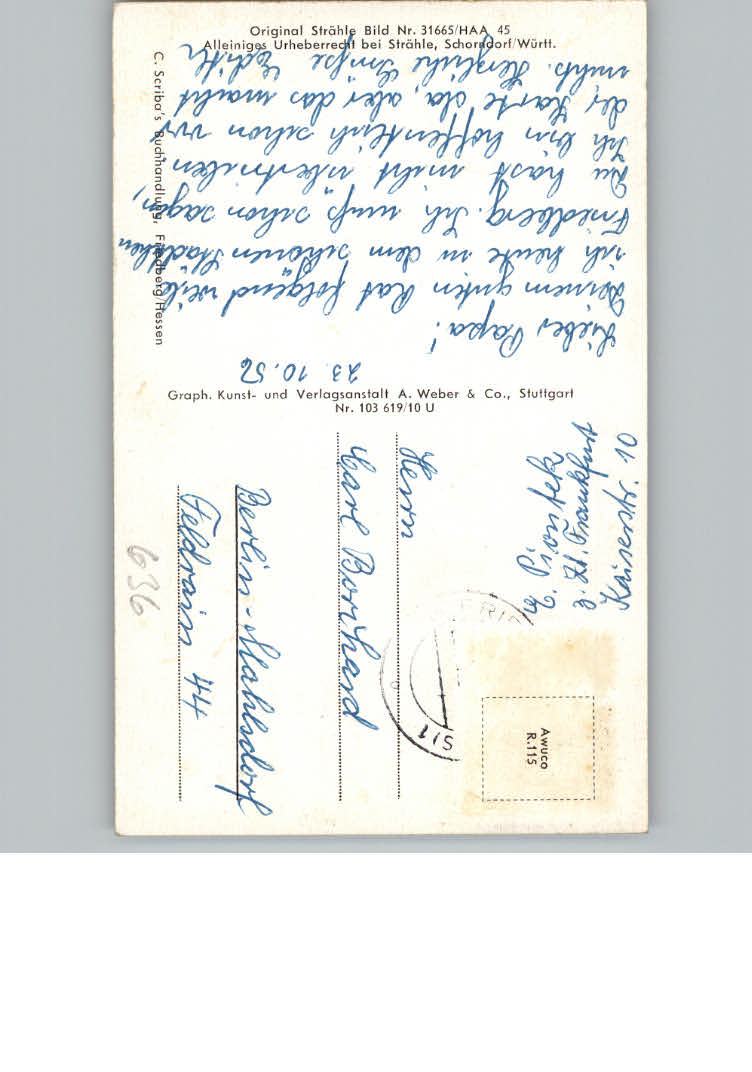 Original Strähle Bild Nr. 31665/HAA 45
Alleiniges Urheberrecht bei Strähle, Schorndorf/Württ.
C. Scriba's Buchhandlung, Friedberg/Hessen
23.10.52
Lieber Papa!
Deinem guten Rat folgend weile
ich heute in dem schönen Städtchen
Friedberg. Ich muß schon sagen,
Du hast nicht übertrieben
Ich bin hoffentlich schon vor
der Karte da, aber das macht
nichts. Herzliche Grüße Edith
Graph. Kunst- und Verlagsanstalt A. Weber & Co., Stuttgart
Nr. 103 619/10 U
E. Piontek
z. Zt. Frankfurt
Kaiserstr. 10
Herrn
Carl Borchard
Berlin-Mahlsdorf
Feldrain 44
Awuco
R.115
636